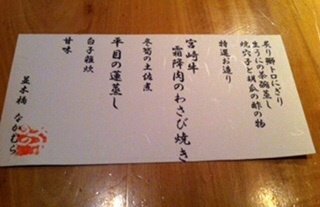 炙り鰤トロにぎり
生うにの茶碗蒸し
焼穴子と胡瓜の酢の物
特選お造り
宮崎牛
霜降肉のわさび焼き
冬筍の土佐煮
平目の蓮蒸し
白子雑炊
甘味
並木橋 なかむら